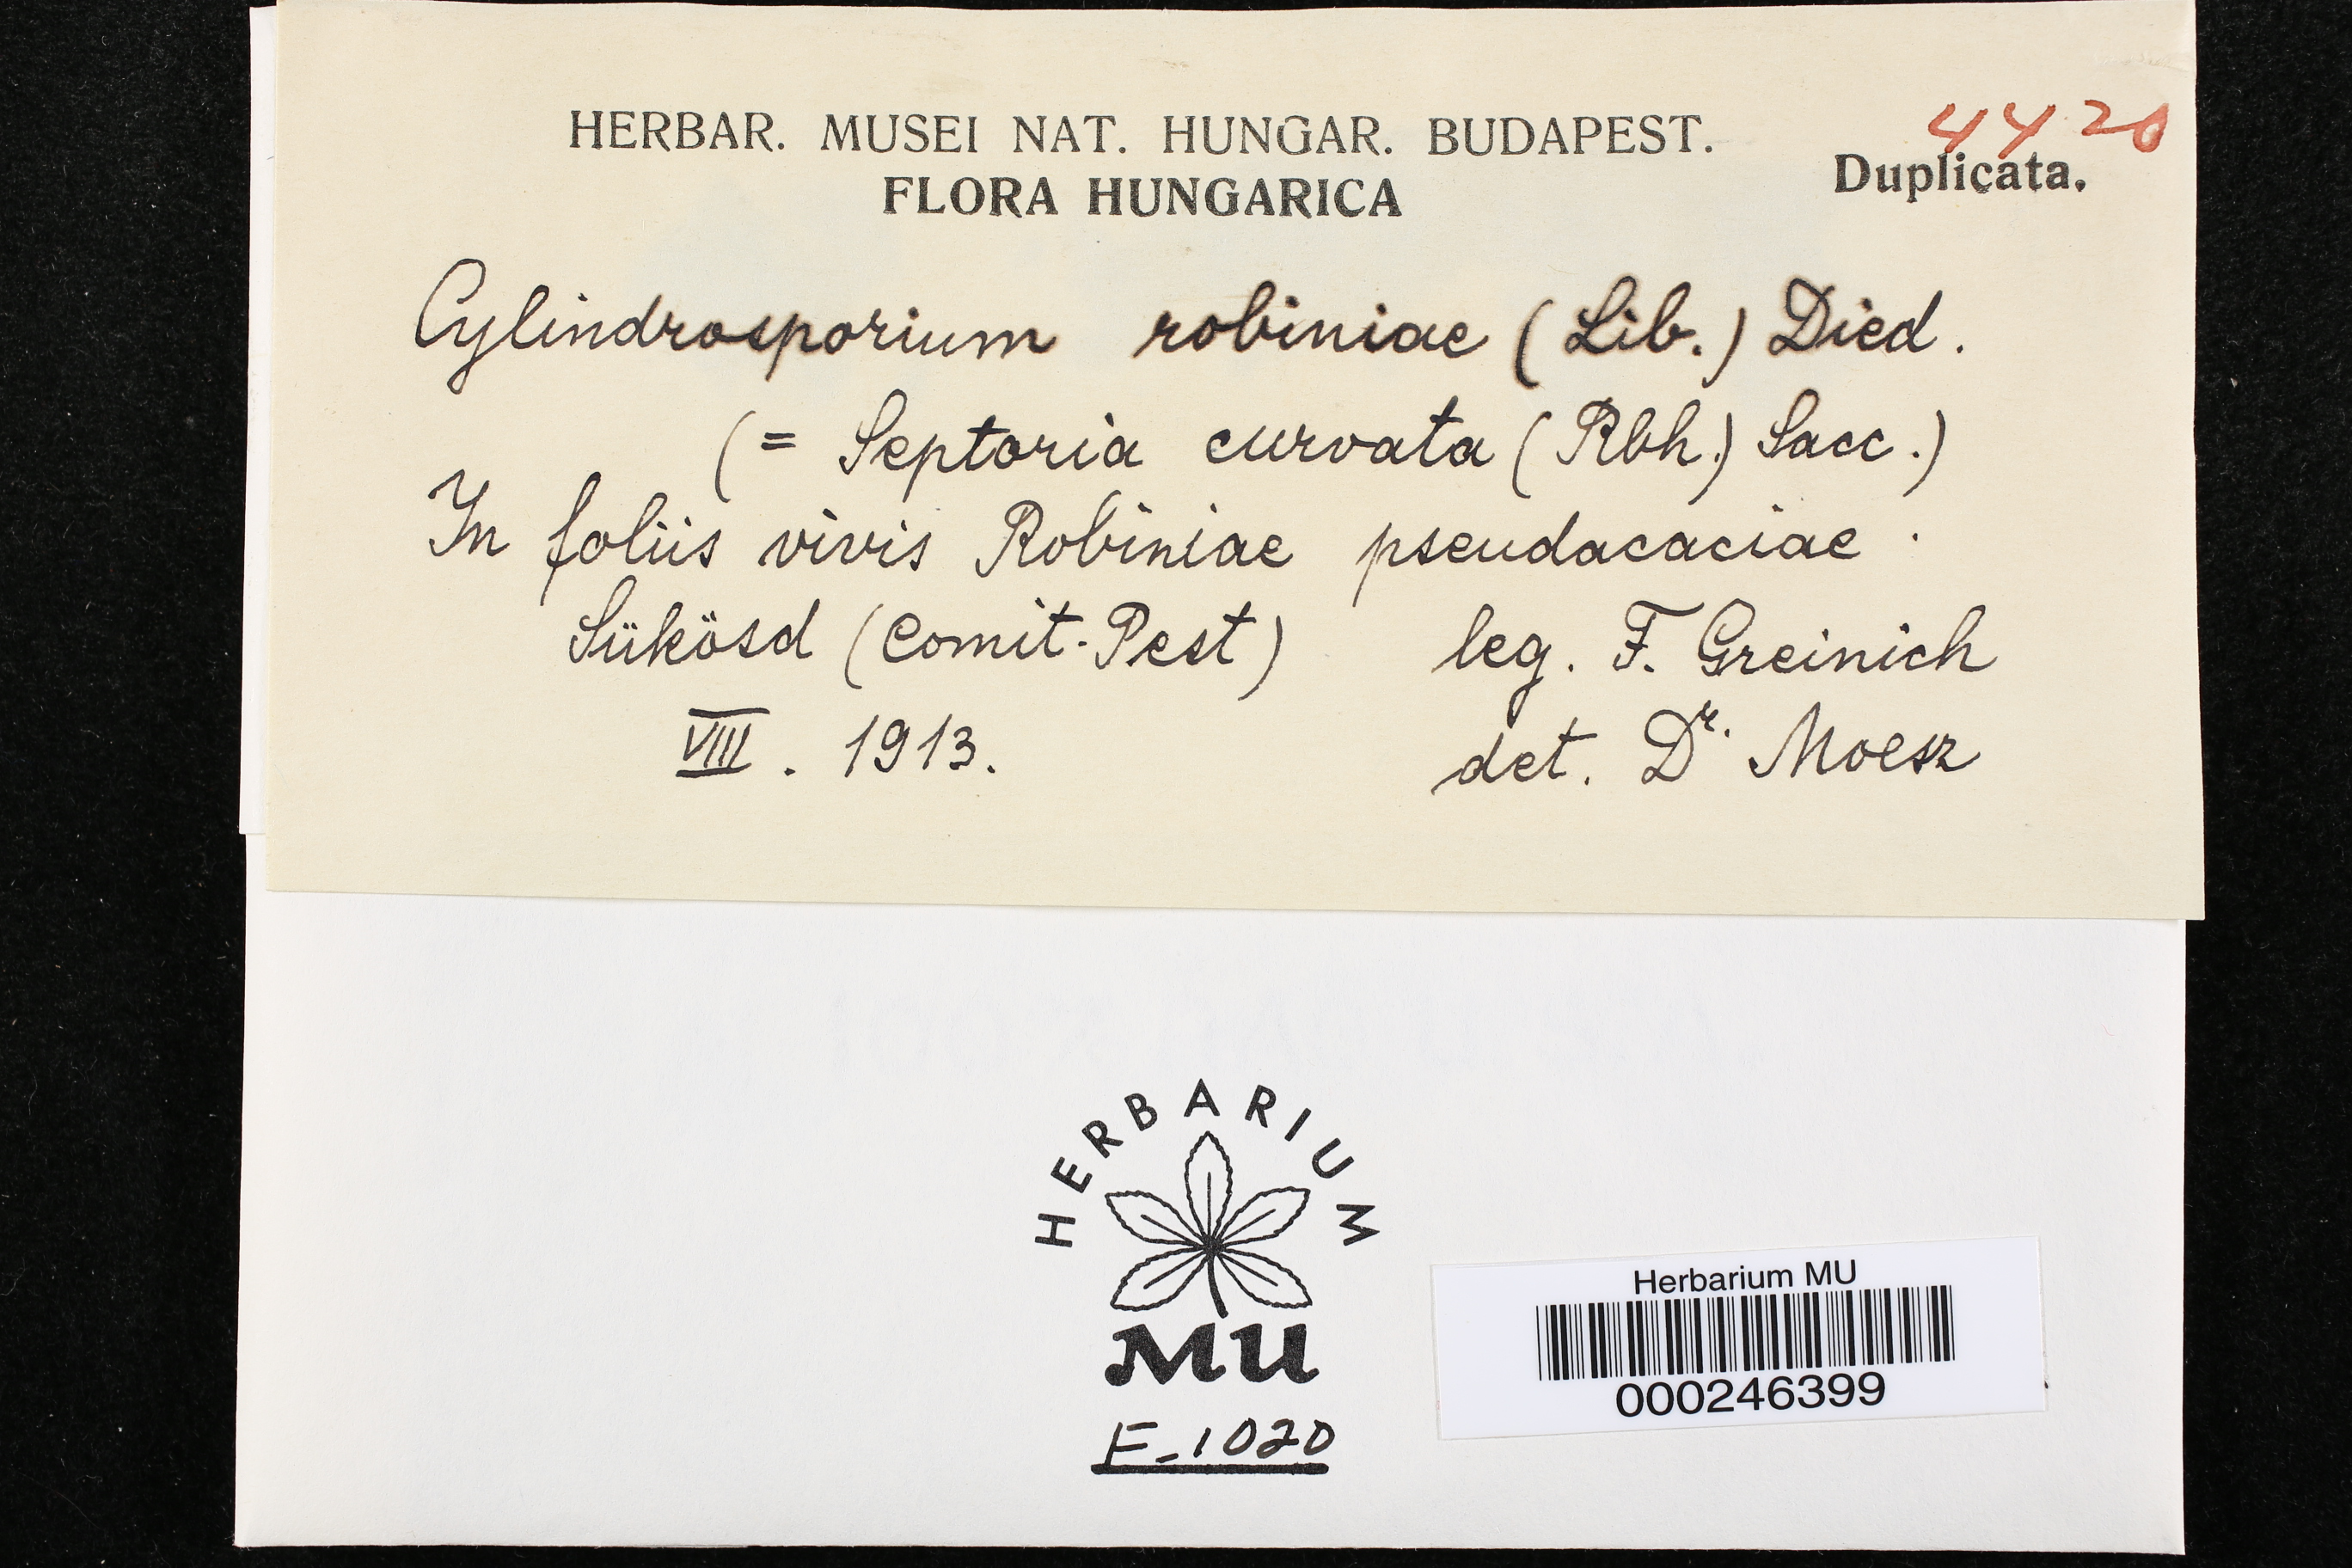 HERBAR. MUSEI NAT. HUNGAR. BUDAPEST.
4420
FLORA HUNGARICA
Duplicata.
Cylindrosporium robiniae (Lib.) Died.
(= Septoria curvata (Rbh.) Sacc.)
In foliis vivis Robiniae pseudacaciae.
Sükösd (Comit. Pest) leg. F. Greinich
VIII. 1913. det. Dr. Moesz
HERBARIUM
MU
F-1020
Herbarium MU
000246399